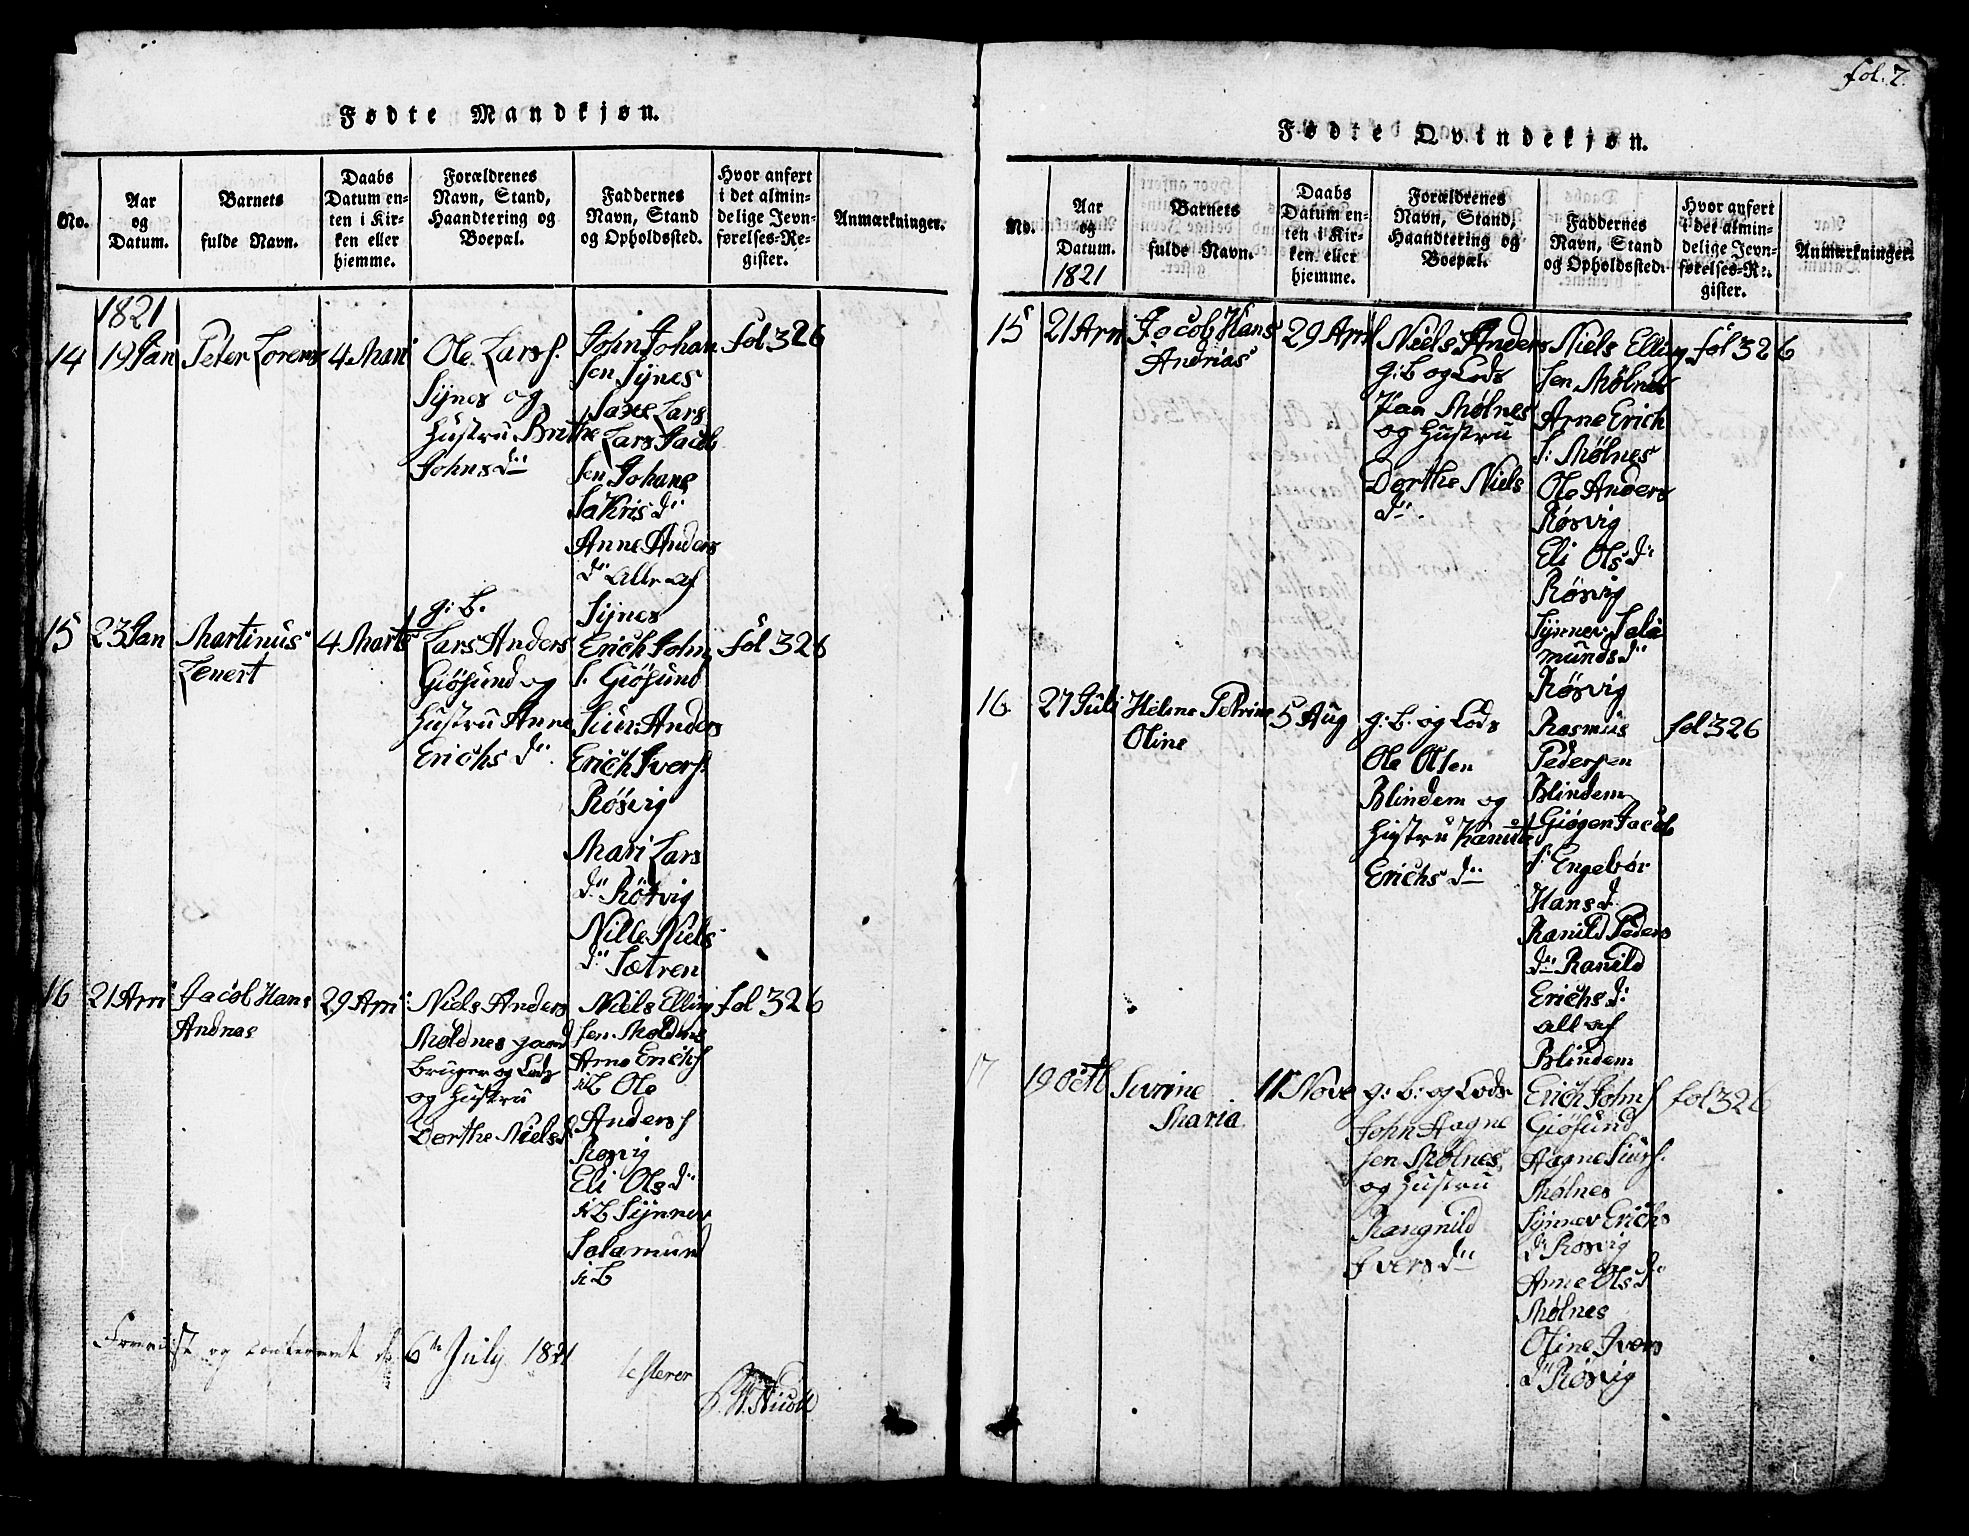 fol. 7.
Fødte Mandkjøn.
No.
Aar
og
Datum.
Barnets
fulde Navn.
Daabs
Datum en-
ten i Kir-
ken eller
hjemme.
Forældrenes
Navn, Stand,
Haandtering og
Boepæl.
Faddernes
Navn, Stand
og Opholdssted.
Hvor anført
i det almin-
delige Jevn-
førelses-Re-
gister.
Anmærkninger.
1821
14
19 Jan
Peter Lorens
4 Mari
Ole Lars f.
Sÿnes og
Hustru Brithe
Johns d..
John Johan
sen Sÿnes
Saxe Lars
Lars Jacob
sen Johane
Sakris d..
Anne Anders
d.. alle af
Sÿnes
fol 326
15
23 Jan
Martinus
Lenert
4 Marts
g: B.
Lars Anders
Giøsund og
Hustru Anne
Erichs d..
Erich John
s. Giøsund
Siur Anders
Erich Ivers.
Røsvig
Mari Lars
d.. Røsvig
Nille Niels
d.. Sætren
fol 326
16
21 Apri
Jacob Hans
Andrias
29 Apri
Niels Anders
Moldnes gaard
Bruger og Lods
og Hustru
Dorthe Niels d
Niels Elling
sen Moldnes
Arne Erichs
Ole
Anders f
Rosvig
Eli Ols d..
Sÿnnev
Salamund
fol 326
og 6te July 1821
Fødte Qvindekjøn.
No.
Aar
og
Datum.
1821
Barnets
fulde Navn.
Daabs
Datum en-
ten i Kir-
ken eller
hjemme.
Forældrenes
Navn, Stand,
Haandtering og
Boepæl.
Faddernes
Navn, Stand
og Opholdssted.
Hvor anført
i det almin-
delige Jevn-
førelses-Re-
gister.
Anmærkninger.
15
21 Apri
Jacob Hans
Andrias
29 Apri
Niels Anders
g: B og Lods
paa Mølnes
og Hustru
Dorthe Niels
d..
Niels Elling
sen Mølnes
Arne Erich
s: Mølnes
Ole Anders
Røsvig
Eli Ols d:
Røsvig
Sÿnnev Sala
munds d..
Røsvig
fol 326
16
27 Juli
Helene Petrine
Oline
5 Aug
g: B. og Lods
Ole Olsen
Blindem og
Hustru Ranild
Erichs d..
Rasmus
Pedersen
Blindem
Giøgen Jacob
s: Engebør
Hans d.
Ranild Peders
d.. Ranild
Erichs d:
all af
Blindem
fol 326
17
19 Octb
Sivrine
Maria
11 Nove
g: B: og Lods
John Aagne
sen Mølnes
og Hustru
Rangnild
Ivers d..
Erich Johns
Giøsund
Aagne Siurs.
Mølnes
Sÿnnev Erichs
d.. Røsvig
Anne Ols d..
Mølnes
Oline Ivers
d.. Røsvig
fol 326